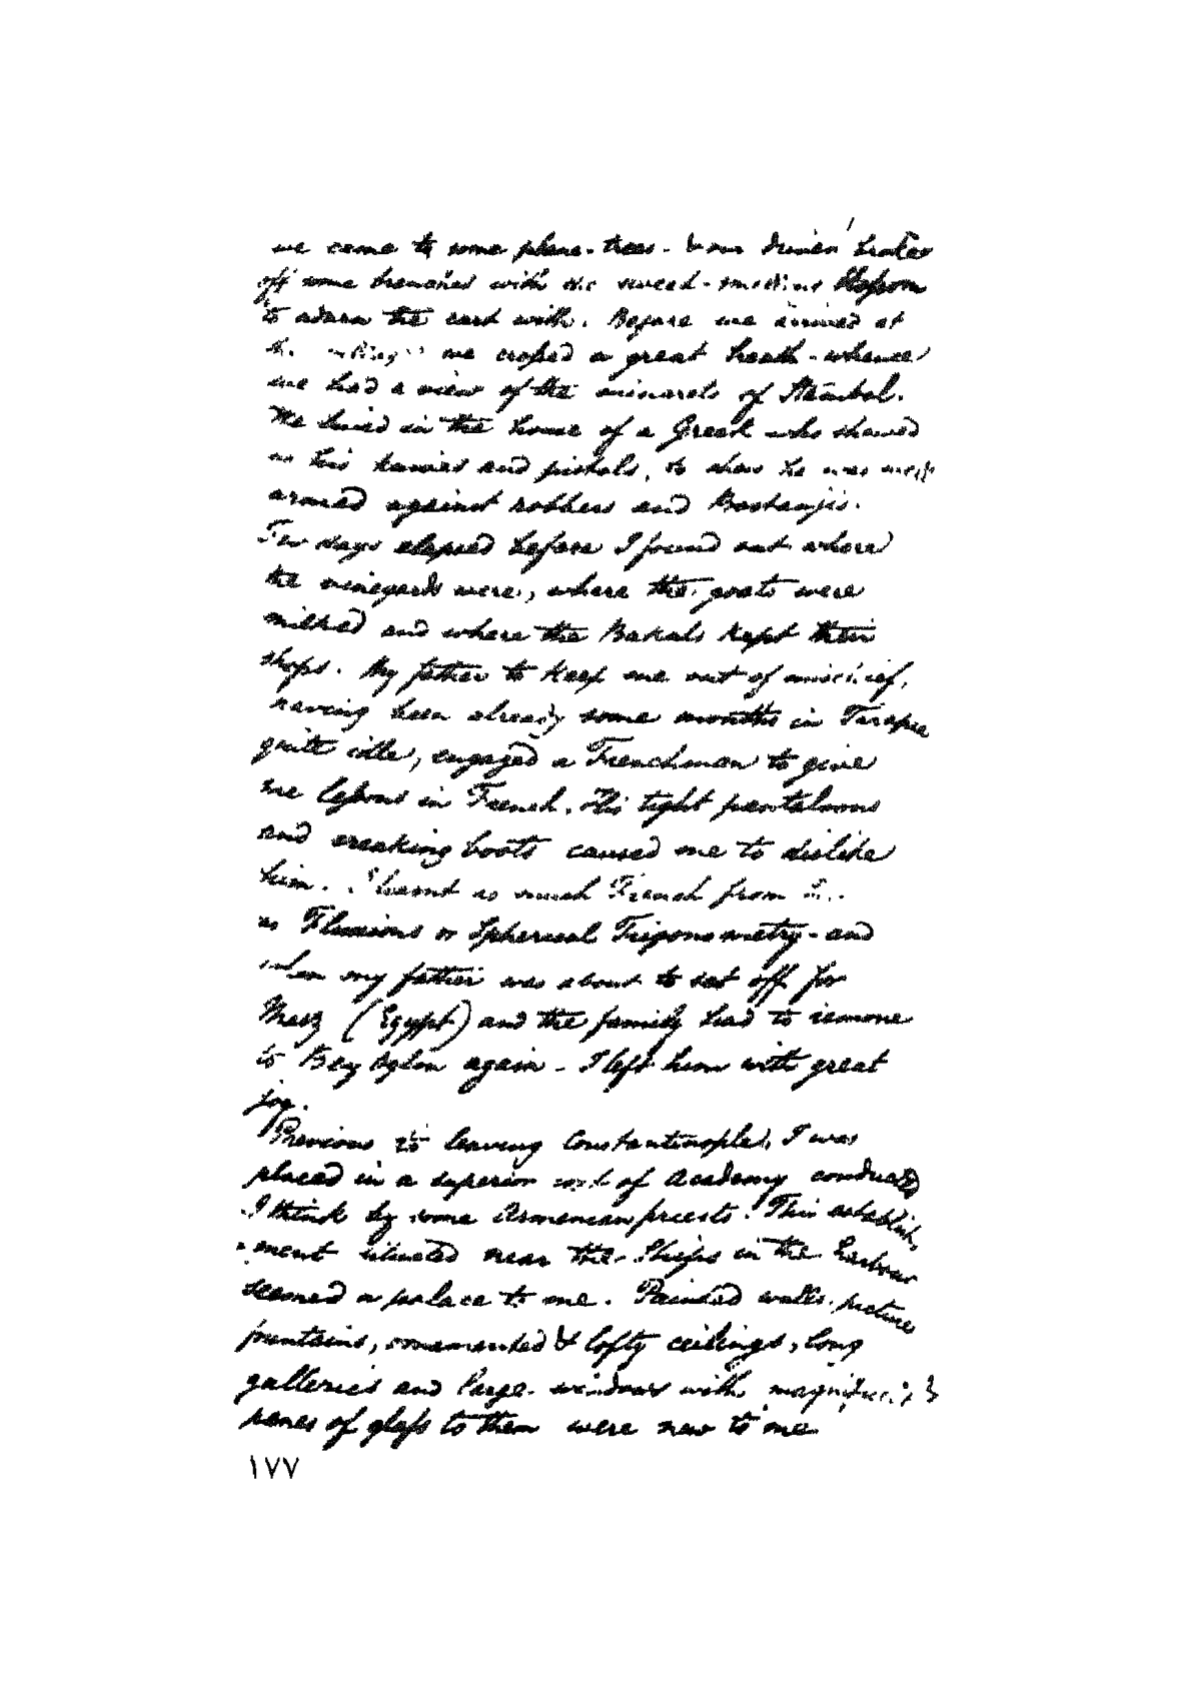 we came to some plane-trees - & our driver broke
off some branches with the sweet-smelling bloſsom
to adorn the cart with. Before we arrived at
the village we croſsed a great heath - whence
we had a view of the minarets of Stambol.
We lived in the house of a Greek who showed
us his knives and pistols, to show he was well
armed against robbers and Bostanjis.
Few days elapsed before I found out where
the vineyards were, where the goats were
milked and where the Bakals kept their
shops. My father to keep me out of mischief,
having been already some months in Tarapia
quite idle, engaged a Frenchman to give
me leſsons in French. His tight pantaloons
and creaking boots caused me to dislike
him. I learnt as much French from
as Fluxions or Spherical Trigonometry - and
when my father was about to set off for
Masz (Egypt) and the family had to remove
to Bey Oglou again - I left him with great
joy.
Previous to leaving Constantinople, I was
placed in a superior sort of Academy conducted
I think by some Armenian priests. This establish
ment situated near the Ships in the harbour
seemed a palace to me. Painted walls, picture
fountains, ornamented & lofty ceilings, long
galleries and large windows with magnificent
panes of glaſs to them were new to me
١٧٧